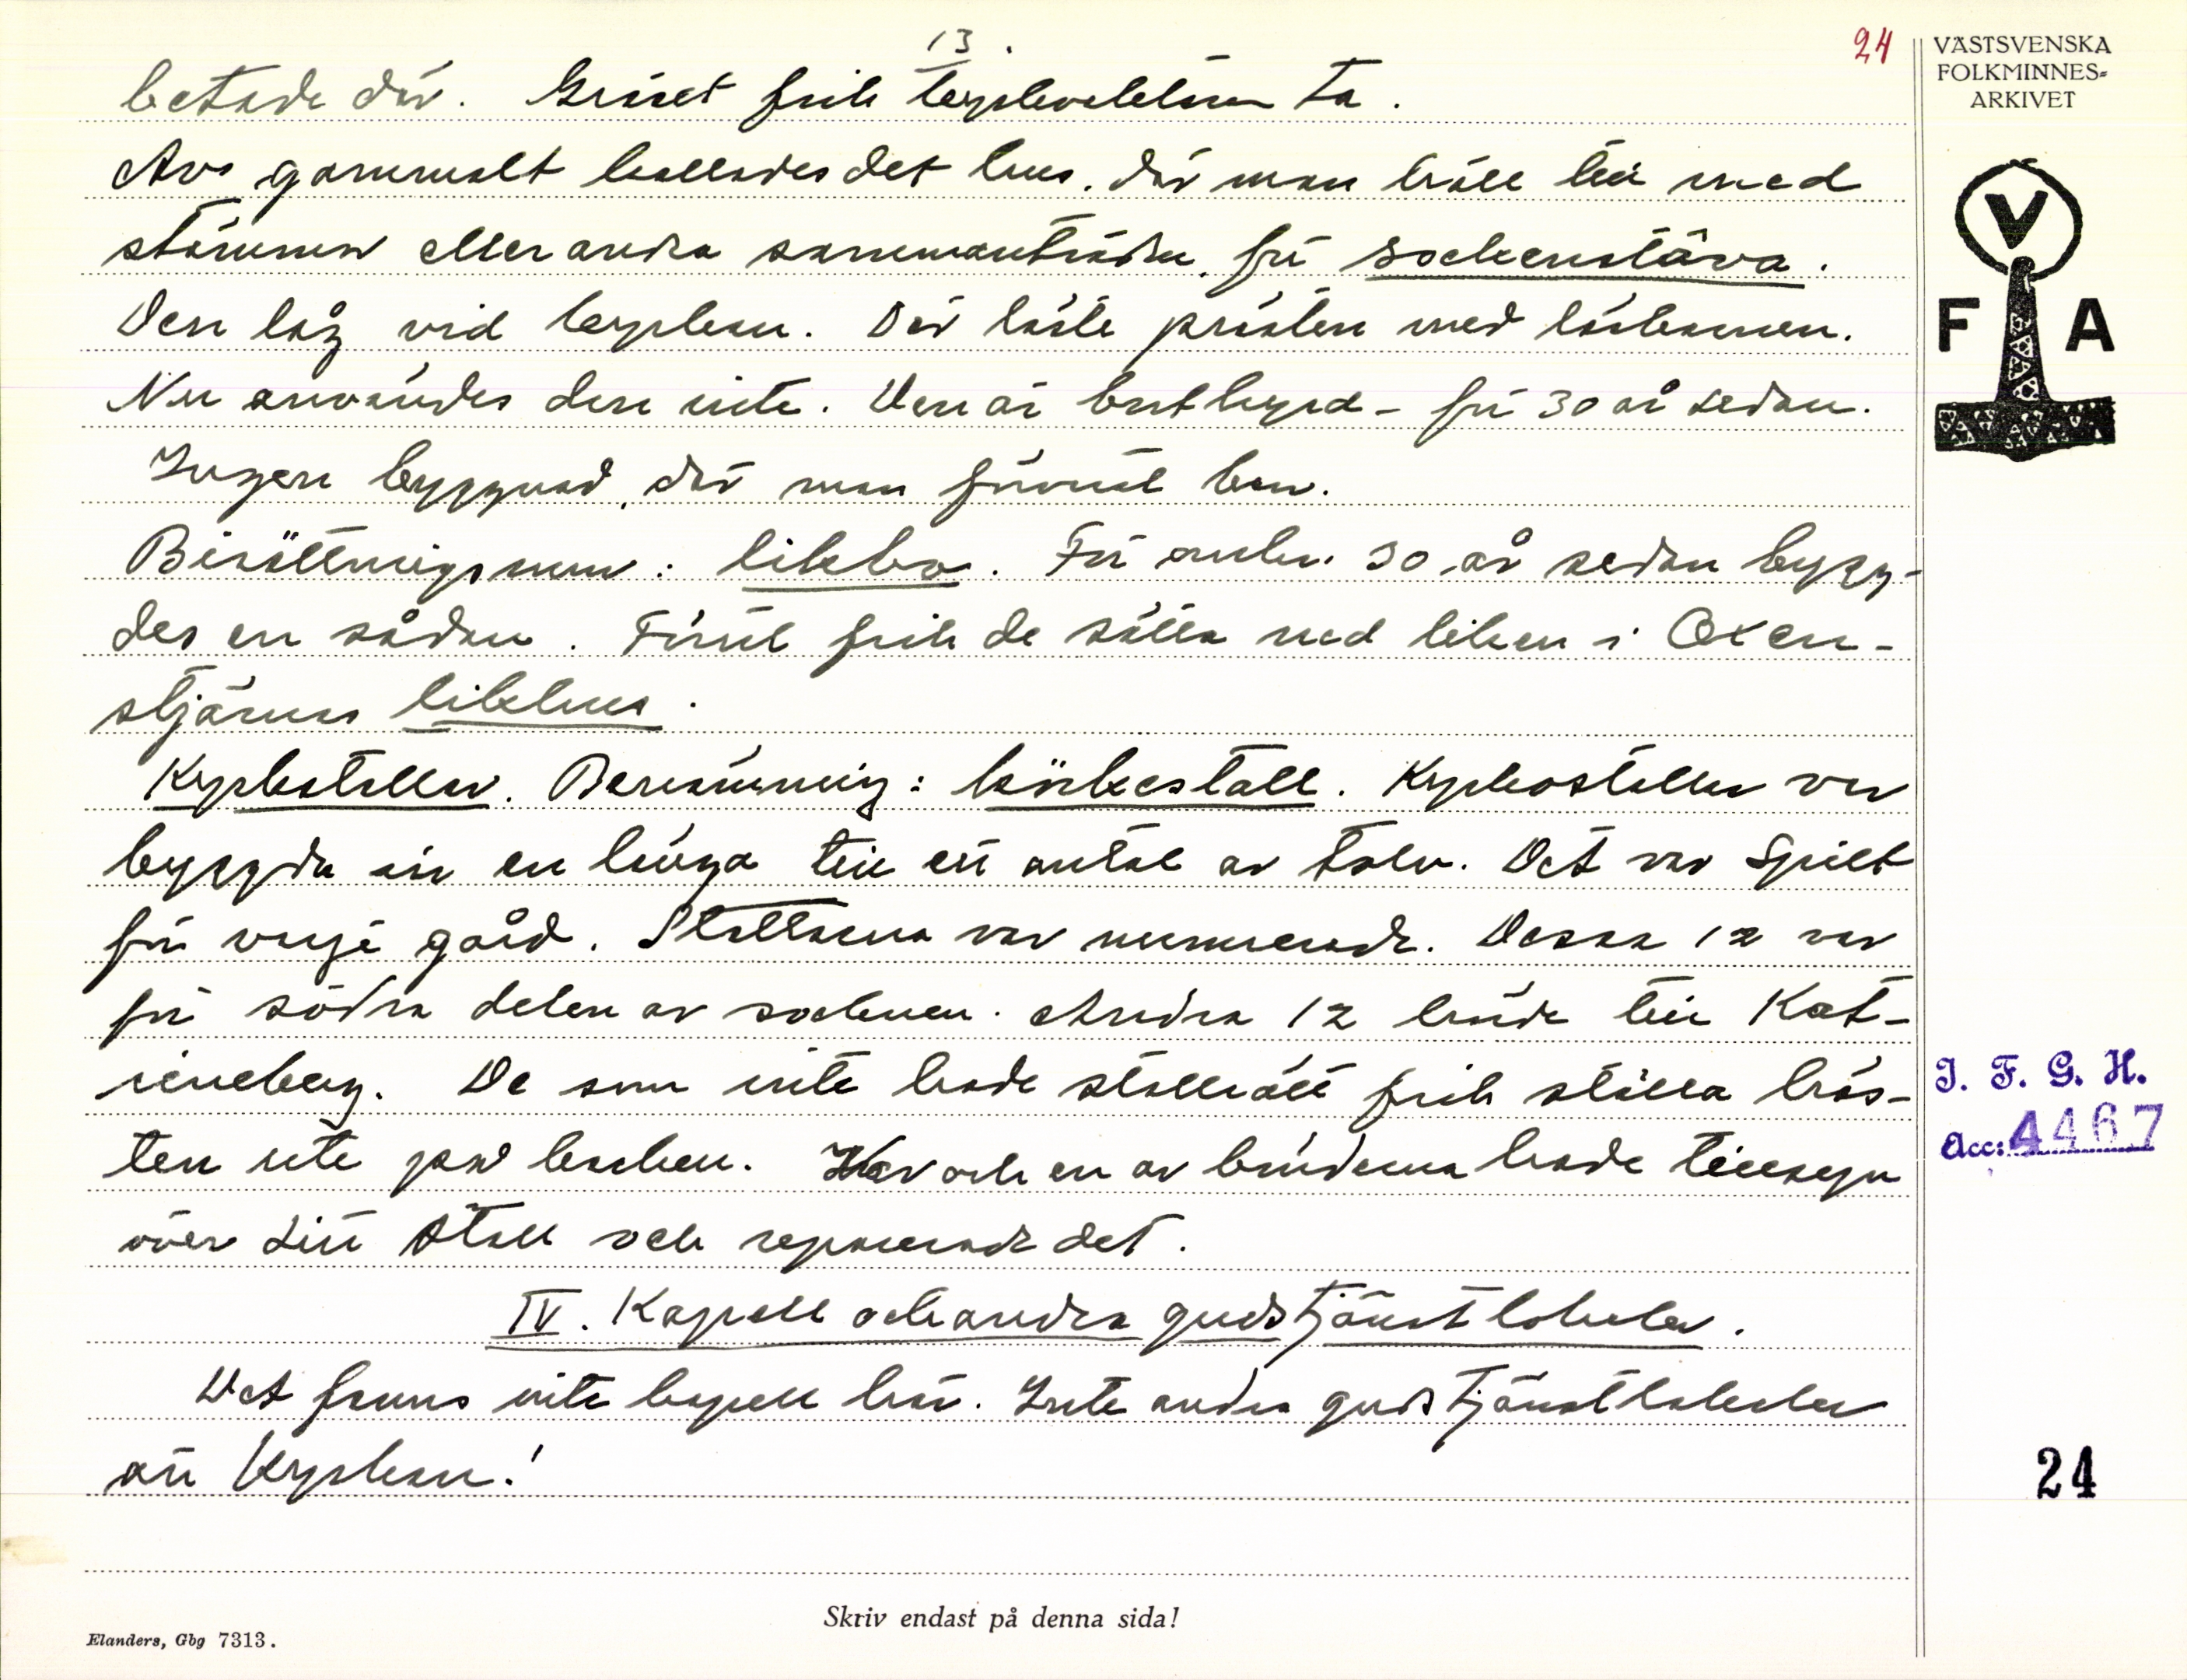 13.
24
VÄSTSVENSKA
FOLKMINNES=
ARKIVET
betade där. Gräset fick kyrkvaktaren ta.
Avs gammalt kallades det hus, där man höll till med
stämmor eller andra sammanträden, för sockenstäva.
Den låg vid kyrkan. Där läste prästen med läsbarnen.
Nu användes den inte. Den är bortbyggd - för 30 år sedan.
Ingen byggnad, där man förvarat ben.
Bisättningsrum: likbo. För omkr. 30 år sedan bygg-
des en sådan. Förut fick de sätta ned liken i Oxen-
stjärnas likhus.
Kyrkstallar. Benämning: körkestall. Kyrkostallar var
byggda i en länga till ett antal av tolv. Det var Spilt
för varje gård. Stallarna var numrerade. Dessa 12 var
för södra delen av socknen. Andra 12 hörde till Kat-
rineberg. De som inte hade stallrätt fick ställa häs-
ten ute på backen. Var och en av bönderna hade tillsyn
över sitt stall och reparerade det.
IV. Kapell och andra gudstjänstlokaler.
Det fanns inte kapell här. Inte andra gudstjänstlokaler
än kyrkan!
V
F A
I. F. G. H.
Acc: 4467
24
Skriv endast på denna sida!
Elanders, Gbg 7313.